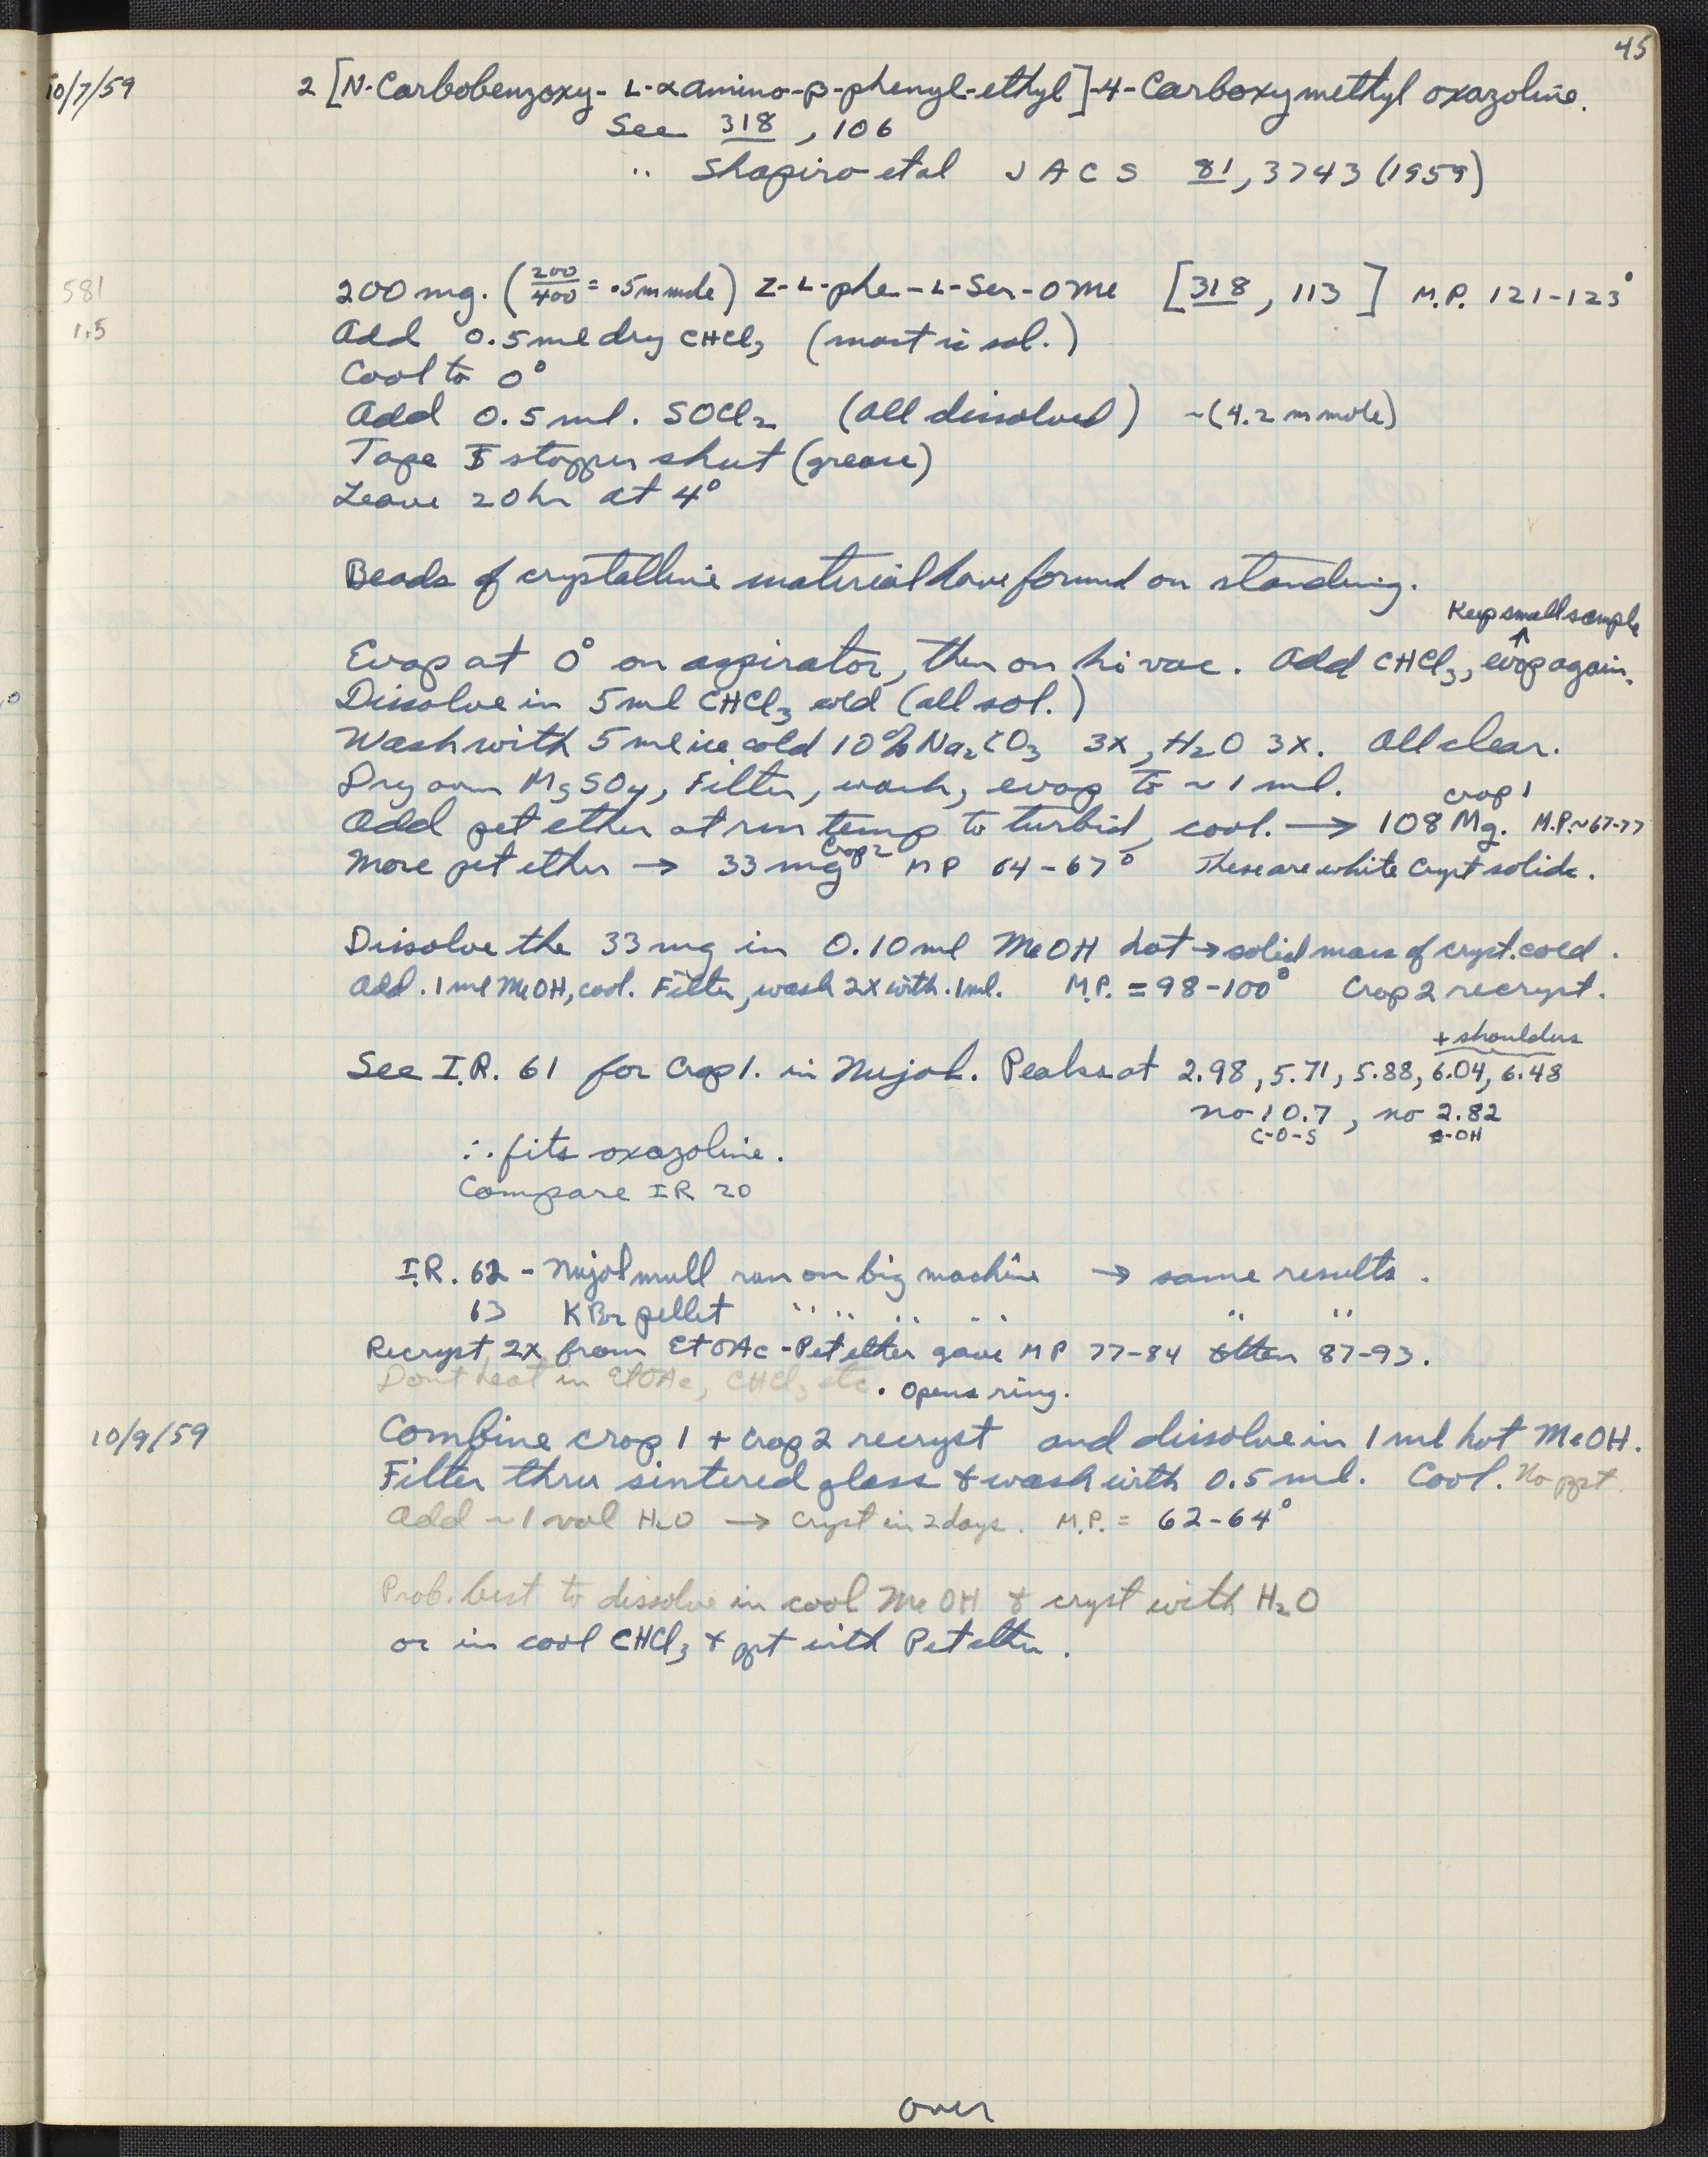 45
10/7/59 2 [N-Carbobenzoxy-L-αamino-β-phenyl-ethyl]-4-Carboxymethyl oxazoline.
See 318, 106
" Shapiro et al J A C S 81, 3743 (1959)
581 200 mg. (200/400 = .5 m mole) Z-L-phe-L-Ser-OMe [318, 113] M.P. 121-123°
1.5 Add 0.5 ml dry CHCl3 (most is sol.)
Cool to 0°
Add 0.5 ml. SOCl2 (all dissolved) ~(4.2 m mole)
Tape stopper shut (grease)
Leave 20 hr at 4°
Beads of crystalline material have formed on standing.
Keep small sample
↑
Evap at 0° on aspirator, then on hi vac. Add CHCl3, evap again.
Dissolve in 5 ml CHCl3 cold (all sol.)
Wash with 5 ml ice cold 10% Na2CO3 3x, H2O 3x. All clear.
Dry over MgSO4, Filter, wash, evap to ~1 ml.
crop 1
Add pet ether at rm temp to turbid, cool. → 108 Mg. M.P. ~67-77
Crop 2
More pet ether → 33 mg MP 64-67° These are white Cryst solids.
Dissolve the 33 mg in 0.10 ml MeOH hot → solid mass of cryst. cold.
Add .1 ml MeOH, cool. Filter, wash 2x with .1 ml. M.P. = 98-100° Crop 2 recryst.
+ shoulders
See I.R. 61 for Crop 1. in Nujol. Peaks at 2.98, 5.71, 5.88, 6.04, 6.48
no 10.7, no 2.82
C-O-S -OH
∴ fits oxazoline.
Compare IR 20
I.R. 62 - Nujol mull run on big machine → same results.
63 KBr pellet " " " " " "
Recryst 2x from EtOAc-Pet ether gave MP 77-84 then 87-93.
Dont heat in EtOAc, CHCl3 etc. Opens ring.
10/9/59 Combine crop 1 + crop 2 recryst and dissolve in 1 ml hot MeOH.
Filter thru sintered glass & wash with 0.5 ml. Cool. No ppt.
Add ~1 vol H2O → Cryst in 2 days. M.P. = 62-64°
Prob. best to dissolve in cool MeOH & cryst with H2O
or in cool CHCl3 & ppt with Pet ether.
over